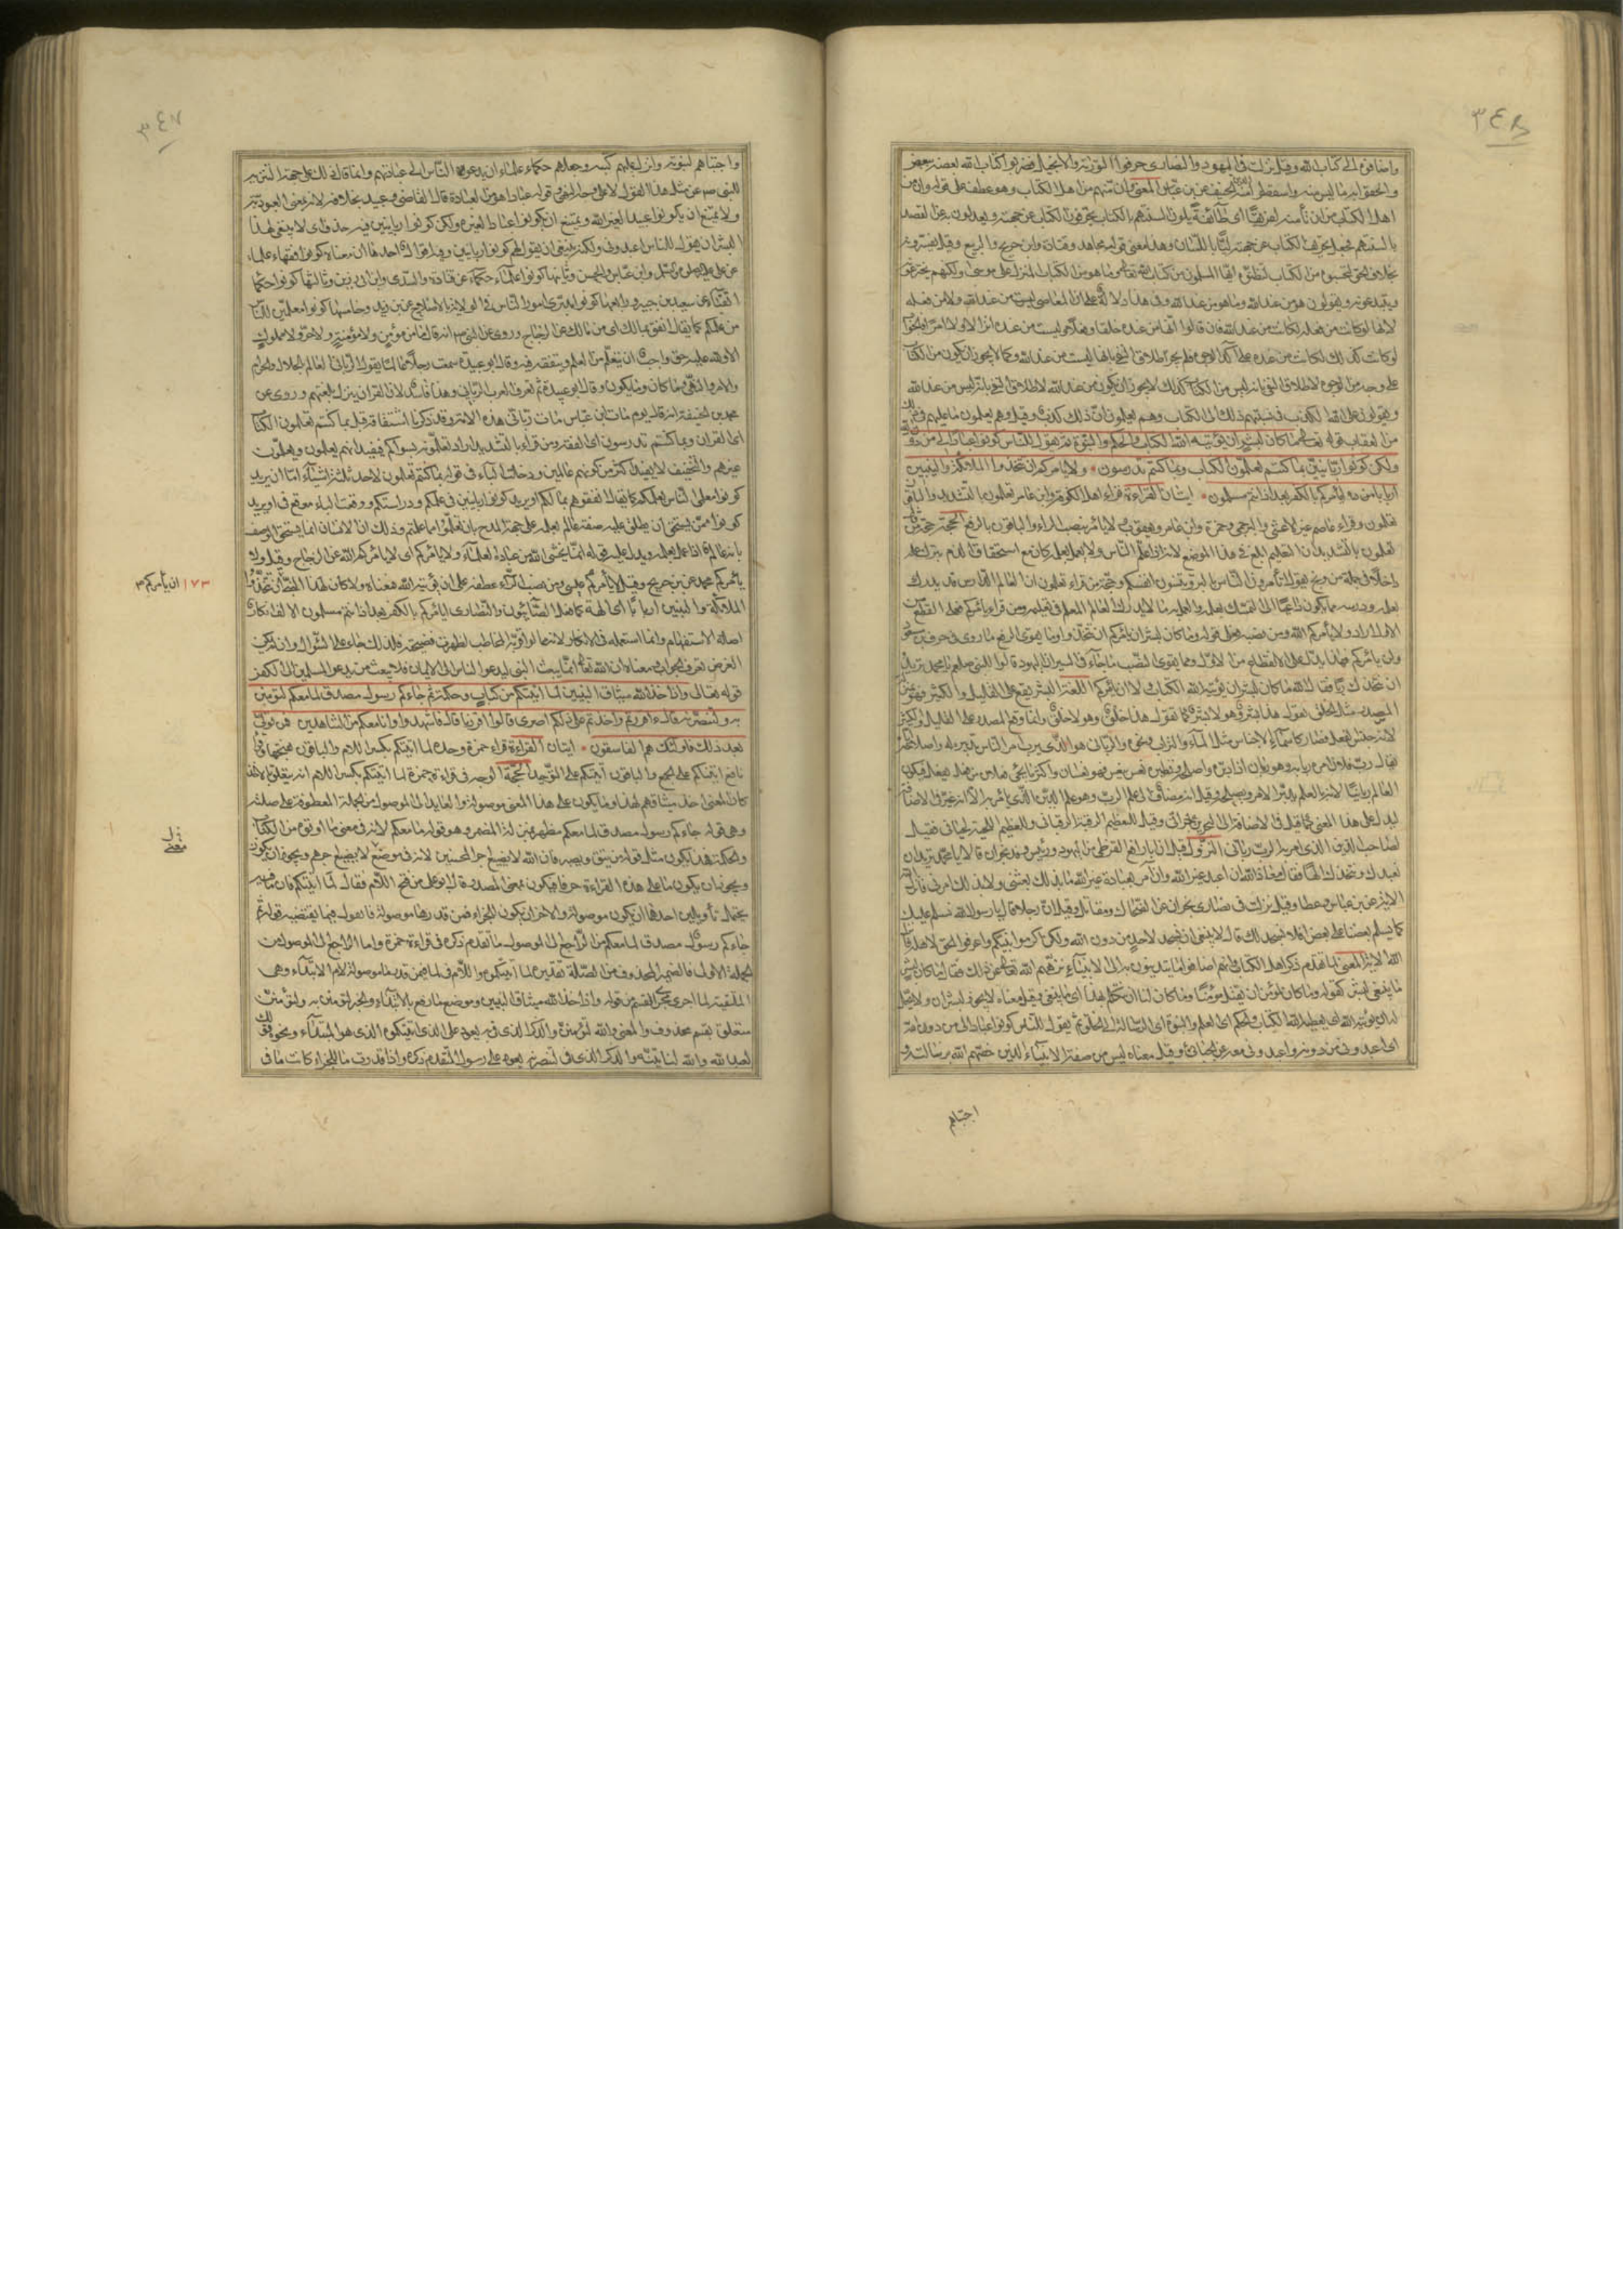 ٣٤٨
واضافوا الى كتاب الله وقيل نزلت فى اليهود والنصارى حرفوا التورية والانجيل وضربوا كتاب الله بعضه ببعض
والحقوا به ما ليس منه واسقطوا منه الدين الحنيف عن ابن عباس المعنى وان منهم من اهل الكتاب وهو عطف على قوله وان من
اهل الكتاب من ان تأمنه لفريقا اى طائفة يلوون السنتهم بالكتاب يحرفون الكتاب عن جهته ويعدلون به عن القصد
بالسنتهم فجعل تحريف الكتاب عن جهته ليّا باللسان وهذا معنى قول مجاهد وقتادة وابن جريج والربيع وقيل يفسرونه
بخلاف الحق لتحسبوه من الكتاب لتظنوه ايها المسلمون من كتاب الله تعالى وما هو من الكتاب المنزل على موسى ولكنهم يخترعونه
ويبتدعونه ويقولون هو من عند الله وما هو من عند الله وفى هذا دلالة على ان المعاصى ليست من عند الله ولا من فعله
لانها لو كانت من فعله لكانت من عند الله فان قالوا انها من عنده خلقا وفعلا وليست من عنده انزالا ولا امرا
لو كانت كذلك لكانت من عنده على آكد الوجوه فلم يجز اطلاق النفى بانها ليست من عند الله وكما لا يجوز ان يكون من الكتاب
على وجه من الوجوه لاطلاق النفى بانه ليس من الكتاب كذلك لا يجوز ان يكون من عند الله لاطلاق النفى بانه ليس من عند الله
ويقولون على الله الكذب فى نسبتهم ذلك الى الكتاب وهم يعلمون ان ذلك كذب وقيل وهم يعلمون ما عليهم فى ذلك
من العقاب قوله تعالى ما كان لبشر ان يؤتيه الله الكتاب والحكم والنبوة ثم يقول للناس كونوا عبادا لى من دون
ولكن كونوا ربانيين بما كنتم تعلمون الكتاب وبما كنتم تدرسون ولا يامركم ان تتخذوا الملائكة والنبيين
اربابا ايأمركم بالكفر بعد اذ انتم مسلمون ايتان القراءة قراء اهل الكوفة وابن عامر تعلمون بالتشديد والباقون
تعلمون وقراء عاصم غير الاعشى والبرجمى وحمزة وابن عامر ويعقوب ولا يأمركم بنصب الراء والباقون بالرفع الحجة حجة من
تعلمون بالتشديد ان التعليم ابلغ فى هذا الموضع لانه اذا علم الناس ولم يعمل بعلمه كان مع استحقاق الذم بترك عمله
داخلا فى جملة من وبخ بقوله اتأمرون الناس بالبر وتنسون انفسكم وحجة من قراء تعلمون ان العالم الدارس قد يدرك
بعلمه ودرسه مما يكون داعيا الى التمسك بعلمه والعمل به ما لا يدركه العالم المعلم فى تعليمه ومن قراء يامركم فعلى القطع من
الاول اراد ولا يأمركم الله ومن نصبه فعلى قوله وما كان لبشر ان يأمركم ان تتخذوا ومما يقوى الرفع ما روى فى حرف ابن مسعود
ولن يأمركم فهذا يدل على الانقطاع من الاول ومما يقوى النصب ما جاء فى السير ان اليهود قالوا للنبى صلعم يا محمد تريد
ان نتخذك ربا فقال الله ما كان لبشر ان يؤتيه الله الكتاب ولا ان يأمركم اللغة البشر يقع على القليل والكثير فهو بمنزلة
المصدر مثل الخلق تقول هذا بشر وهؤلاء بشر كما تقول هذا خلق وهؤلاء خلق وانما وقع المصدر على القليل والكثير
لانه جنس الفعل فصار كاسماء الاجناس مثل الماء والتراب ونحوه والربانى هو الذى يرب امر الناس بتدبيره له واصلاحه
يقال رب فلان امره ربابة وهو ربان اذا دبره واصلحه ونظيره نعس ينعس فهو نعسان واكثر ما يجئ فعلان من فعل يفعل فيكون
العالم ربانيا لانه بالعلم يدبر الامر ويصلحه وقيل انه مضاف الى علم الرب وهو علم الدين الذى يأمر به الا انه غير فى الاضافة
ليدل على هذا المعنى كما قيل فى الاضافة الى البحرين بحرانى وقيل للعظيم الرقبة الرقبانى وللعظيم اللحية لحيانى فقيل
لصاحب الدين الذى امر به الرب ربانى النزول قيل ان ابا رافع القرظى من اليهود ورئيس وفد نجران قالا يا محمد تريد ان
نعبدك ونتخذك الها فقال معاذ الله ان اعبد غير الله وان آمر بعبادة غير الله ما بذلك بعثنى ولا بذلك امرنى فانزل
الاية عن ابن عباس وعطا وقيل نزلت فى نصارى نجران عن الضحاك ومقاتل وقيل ان رجلا قال يا رسول الله نسلم عليك
كما يسلم بعضنا على بعض افلا نسجد لك قال لا ينبغى ان يسجد لاحد من دون الله ولكن اكرموا نبيكم واعرفوا الحق لاهله فانزل
الله الاية المعنى لما تقدم ذكر اهل الكتاب وانهم اضافوا ما يتدينون به الى الانبياء نزههم الله تعالى عن ذلك فقال ما كان لبشر
ما ينبغى لبشر كقوله وما كان لمؤمن ان يقتل مؤمنا وما كان لنا ان نتكلم بهذا اى ما ينبغى وقيل معناه لا يجوز لبشر ان ولا يحل
له ان يؤتيه الله اى يعطيه الله الكتاب والحكم اى العلم والنبوة اى الرسالة الى الخلق ثم يقول للناس كونوا عبادا لى من دون الله
اى اعبدونى من دونه واعبدونى معه عن الجبائى وقيل معناه ليس من صفة الانبياء الذين خصهم الله برسالته و
اجتباهم
٣٤٧
واجتباهم لنبوته وانزل عليهم كتبه وجعلهم حكماء علماء ان يدعوا الناس الى عبادتهم وانما قال ذلك على جهة التنزيه
للنبى صم عن مثل هذا القول لا على وجه النهى وقوله عبادا هو من العبادة قال القاضى وعبيد بخلافه لانه بمعنى العبودية
ولا يمتنع ان يكونوا عبيدا لغير الله ويمتنع ان يكونوا عبادا لغيره ولكن كونوا ربانيين فيه حذف اى لا ينبغى لهذا
البشر ان يقول للناس اعبدونى ولكن ينبغى ان يقول لهم كونوا ربانيين وفيه اقوال احدها ان معناه كونوا فقهاء علماء
عن على وابن عباس والحسن وثانيها كونوا علماء حكماء عن قتادة والسدى وابن ابى رزين وثالثها كونوا حكماء
اتقياء عن سعيد بن جبير ورابعها كونوا مدبرى امور الناس فى الولاية بالاصلاح عن ابن زيد وخامسها كونوا معلمين للناس
من علمكم كما يقال انفق بمالك اى من مالك عن الزجاج وروى عن النبى صم انه قال ما من مؤمن ولا مؤمنة ولا حر ولا مملوك
الا ولله عليه حق واجب ان يتعلم من العلم ويتفقه فيه وقال ابو عبيدة سمعت رجلا عالما يقول الربانى العالم بالحلال والحرام
والامر والنهى وما كان وما يكون وقال ابو عبيدة لم تعرف العرب الربانى وهذا فاسد لان القران ينزل بلغتهم وروى عن
محمد بن الحنيفة انه قال يوم مات ابن عباس مات ربانى هذه الامة وقد ذكرنا اشتقاقه قبل بما كنتم تعلمون الكتاب
اى القران وبما كنتم تدرسون اى الفقه ومن قراء بالتشديد اراد تعلمونه لسواكم فيفيد انهم يعلمون ويعلمون
غيرهم والتخفيف لا يفيد اكثر من كونهم عالمين ودخلت الباء فى قوله بما كنتم تعلمون لاحد ثلثة اشياء اما ان يريد
كونوا معلمى الناس بعلمكم كما يقال انفقوهم بمالكم او يريد كونوا ربانيين فى علمكم ودراستكم ووقعت الباء موقع فى او يريد
كونوا ممن يستحق ان يطلق عليه صفة عالم بعلمه على جهة المدح بان تعملوا بما علمتم وذلك ان الانسان انما يستحق الوصف
بانه عالم اذا عمل بعلمه ويدل عليه قوله انما يخشى الله من عباده العلماء ولا يأمركم اى لا يأمركم الله عن الزجاج وقيل ولا
يأمركم محمد عن ابن جريج وقيل لا يأمركم عيسى ومن نصب الراء عطفه على ان يؤتيه الله فمعناه ولا كان لهذا النبى ان تتخذوا
١٧٣ ان يأمركم ٣
الملائكة والنبيين اربابا اى الهة كما فعله الصابئون والنصارى ايأمركم بالكفر بعد اذ انتم مسلمون الالف انكار
اصله الاستفهام وانما استعمل فى الانكار لانه مما لو اقر به المخاطب لظهرت فضيحته فلذلك جاء على السؤال وان لم يكن
الغرض تعرف الجواب ومعناه ان الله تعالى انما يبعث النبى ليدعو الناس الى الايمان فلا يبعث من يدعو المسلمين الى الكفر
قوله تعالى واذ اخذ الله ميثاق النبيين لما اتيتكم من كتاب وحكمة ثم جاءكم رسول مصدق لما معكم لتؤمنن
به ولتنصرنه قال ءاقررتم واخذتم على ذلكم اصرى قالوا اقررنا قال فاشهدوا وانا معكم من الشاهدين فمن تولى
بعد ذلك فاولئك هم الفاسقون ايتان القراءة قراء حمزة وحده لما اتيتكم بكسر اللام والباقون بفتحها وقراء
نافع اتيناكم على الجمع والباقون آتيتكم على التوحيد الحجة الوجه فى قراءة حمزة لما اتيتكم بكسر اللام انه يتعلق بالاخذ
كان المعنى اخذ ميثاقهم لهذا وما يكون على هذا المعنى موصولة والعايد الى الموصول من الجملة المعطوفة على صلته
وهى قوله جاءكم رسول مصدق لما معكم مظهر بمنزلة المضمر وهو قوله ما معكم لانه فى معنى ما اوتوه من الكتاب
والحكمة فهذا يكون مثل قوله من يتق ويصبر فان الله لا يضيع اجر المحسنين لانه فى موضع لا يضيع اجرهم ويجوز ان يكون
ويجوز ان يكون ما على هذه القراءة حرفا فيكون بمعنى المصدر قال ابو على من فتح اللام فقال لما اتيتكم فان ما فيه
يحتمل تأويلين احدهما ان يكون موصولة والاخر ان يكون للجزاء فمن قدرها موصولة فالقول فيما يقتضيه قوله ثم
جاءكم رسول مصدق لما معكم من الراجع الى الموصول ما تقدم ذكره فى قراءة حمزة واما الراجع الى الموصول من
الجملة الاولى فالضمير المحذوف من الصلة تقديره لما آتيتكموه واللام فى لما فيمن قدر ما موصولة لام الابتداء وهى
المتلقية لما اجرى مجرى القسم من قوله واذ اخذ الله ميثاق النبيين وموضع ما رفع بالابتداء والخبر لتؤمنن به ولتؤمنن
متعلق بقسم محذوف والمعنى والله لتؤمنن والذكر الذى فى به يعود على الذى اتيتكموه الذى هو المبتداء ونحوه ذلك
لعبد الله والله لتأتينه والذكر الذى فى لتنصرنه يعود على رسول المتقدم ذكره واذا قدرت ما للجزاء كانت ما فى